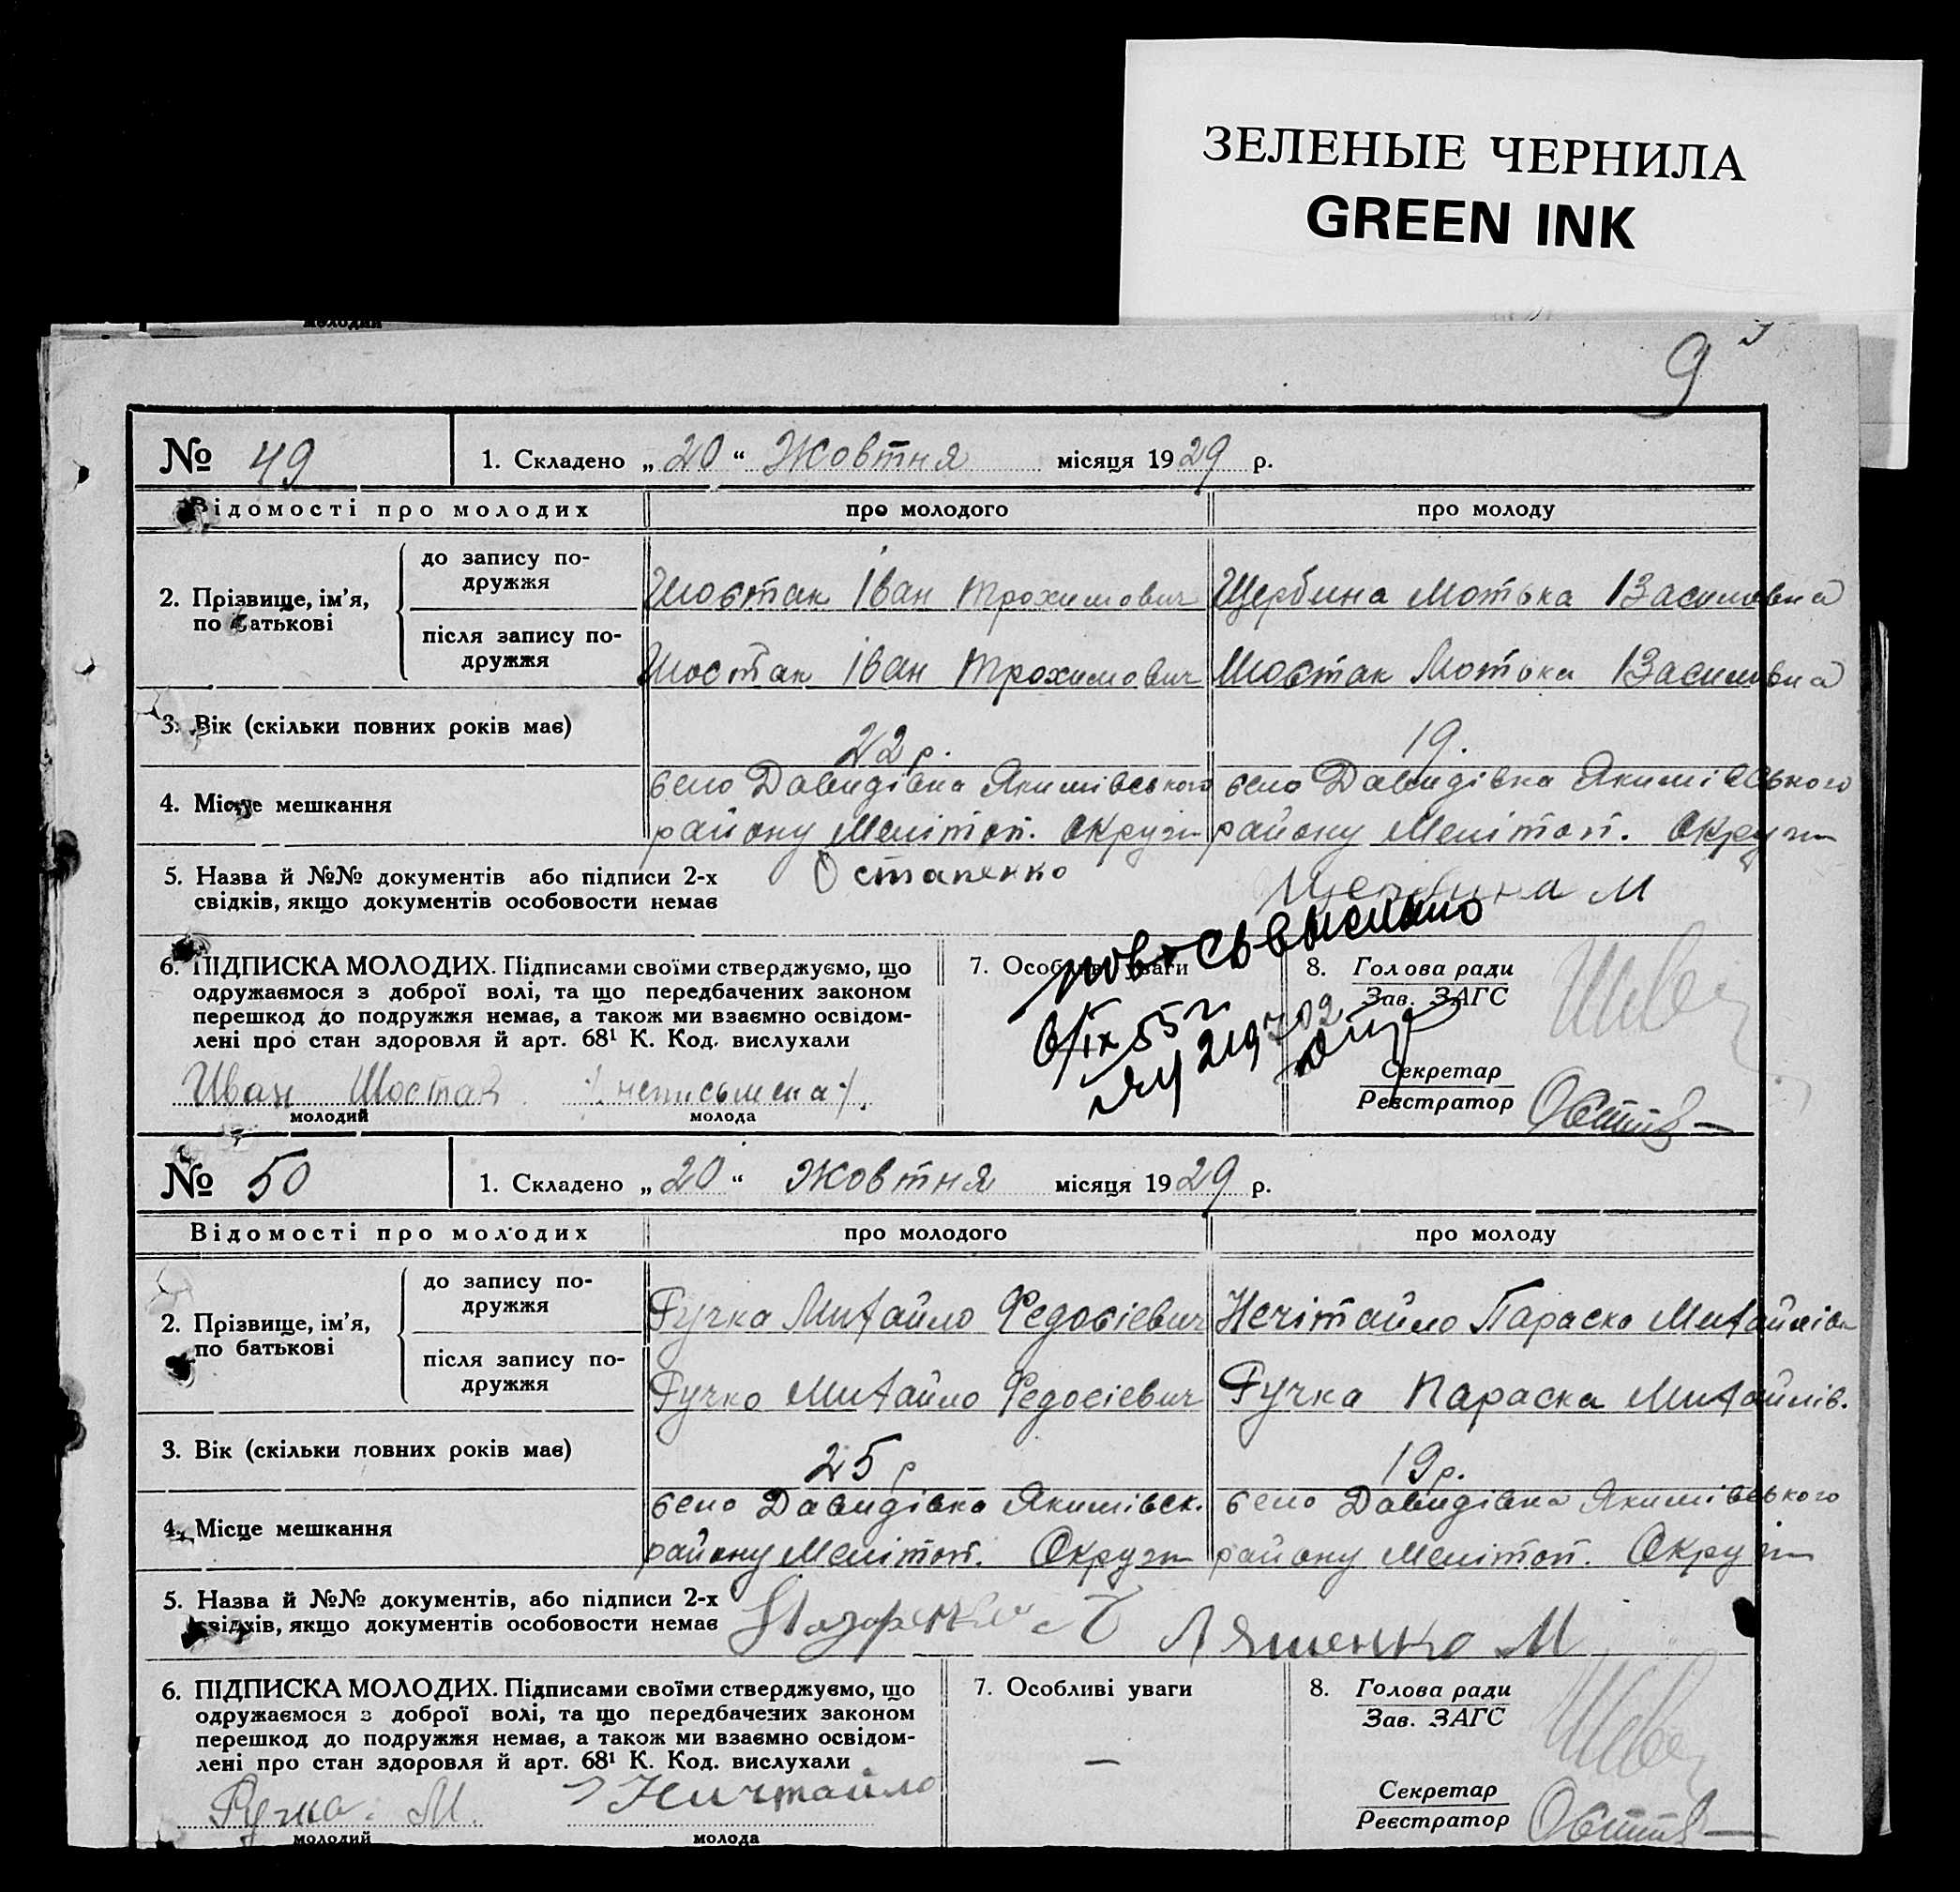 ЗЕЛЕНЫЕ ЧЕРНИЛА
GREEN INK
9
№ 49
1. Складено „ 20 “ Жовтня місяця 1929 р.
Відомості про молодих
про молодого
про молоду
2. Прізвище, ім’я, по батькові
до запису подружжя
Шостак Іван Трохимович
Щербина Мотька Василовна
після запису подружжя
Шостак Іван Трохимович
Шостак Мотька Василовна
3. Вік (скільки повних років має)
22 р.
19.
4. Місце мешкання
село Давидівка Якимівського
району Мелітоп. Округи
село Давидівка Якимівського
району Мелітоп. Округи
5. Назва й №№ документів або підписи 2-х
свідків, якщо документів особовости немає
Остапенко
Щербина М
6. ПІДПИСКА МОЛОДИХ. Підписами своїми стверджуємо, що
одружаємося з доброї волі, та що передбачених законом
перешкод до подружжя немає, а також ми взаємно освідом-
лені про стан здоров’я й арт. 68¹ К. Код. вислухали
Иван Шостак
неписьмена
молодий
молода
7. Особливі уваги
8. Голова ради
Зав. ЗАГС
Секретар
Реєстратор
№ 50
1. Складено „ 20 “ Жовтня місяця 1929 р.
Відомості про молодих
про молодого
про молоду
2. Прізвище, ім’я, по батькові
до запису подружжя
Ручка Михайло Федосієвич
Нечітайло Параска Михайлів
після запису подружжя
Ручко Михайло Федосієвич
Ручка Параска Михайлів.
3. Вік (скільки повних років має)
25 р
19 р.
4. Місце мешкання
село Давидівка Якимівск.
району Мелітоп. Округи
село Давидівка Якимівського
району Мелітоп. Округи
5. Назва й №№ документів, або підписи 2-х
свідків, якщо документів особовости немає
Ляшенко М
6. ПІДПИСКА МОЛОДИХ. Підписами своїми стверджуємо, що
одружаємося з доброї волі, та що передбачених законом
перешкод до подружжя немає, а також ми взаємно освідом-
лені про стан здоровля й арт. 68¹ К. Код. вислухали
Ручка. М.
Ничтайло
молодий
молода
7. Особливі уваги
—
8. Голова ради
Зав. ЗАГС
Секретар
Реєстратор